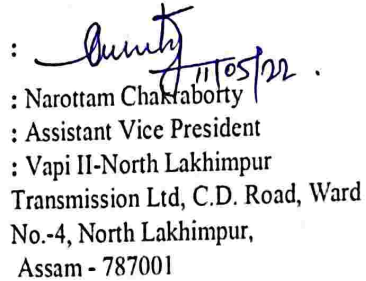 :
11/05/22.
: Narottam Chakraborty
: Assistant Vice President
: Vapi II-North Lakhimpur
Transmission Ltd, C.D. Road, Ward
No.-4, North Lakhimpur,
Assam - 787001